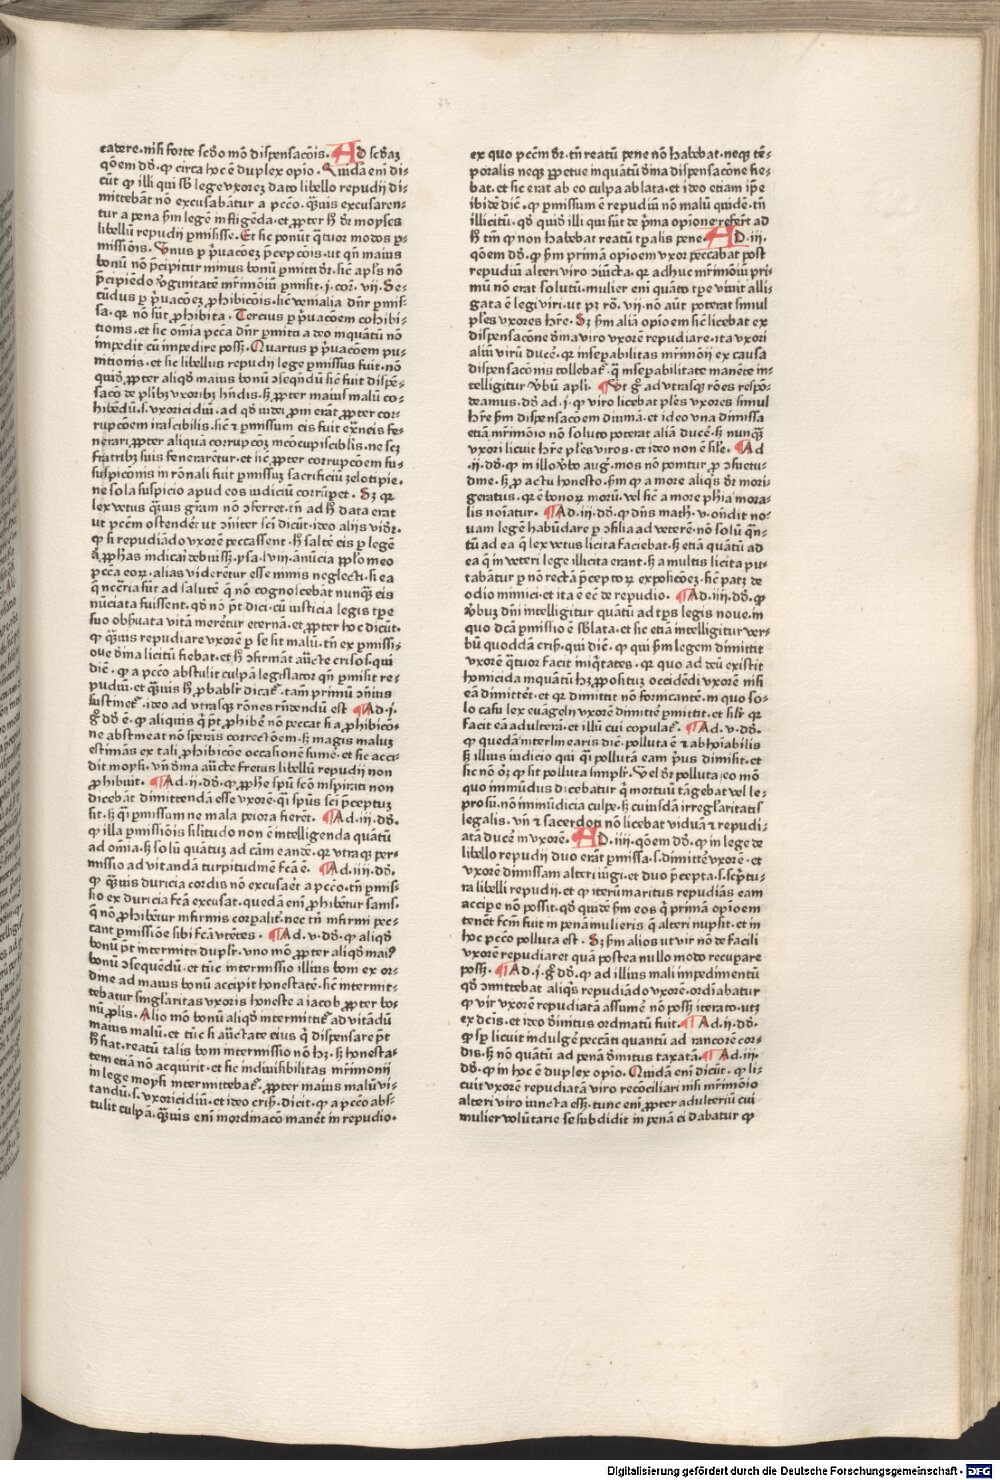 cadere. nisi forte scḋo mō dispensacōis. AD scḋaꝫ
qōem dō. ꝙ circa hoc ē duplex opio. Quidā enī di-
cūt ꝙ illi qui sb lege vxoreꝫ dato libello repudij di-
mittebāt nō excusabātur a pccō. qͣuis excusaren-
tur a pena ẜm legē infligēda. et ꝓpter hͦ dr̄ moyses
libellū repudij ꝑmisisse. Et sic ponūt qͣtuor modos ꝑ-
missiōis. Vnus ꝑ pͥuacōeꝫ p̄cepcōis. vt qn̄ maius
bonū nō p̄cipitur minus bonū ꝑmitti dr̄. sic apl̄s nō
p̄cipiēdo v̓ginitatē mr̄imōiū ꝑmisit. j. cor. vij. Se-
cūdus ꝑ pͥuacōeꝫ ꝓhibicōis. sic venialia dn̄r ꝑmis-
sa. qꝛ nō sūt ꝓhibita. Tercius ꝑ pͥuacōem cohibi-
tionis. et sic om̄ia pccā dn̄r ꝑmitti a deo inquātū nō
impedit cū impedire possꝫ. Quartus ꝑ pͥuacōem pu-
nitionis. et sic libellus repudij lege ꝑmissus fuit. nō
quidē ꝓpter aliqḋ maius bonū ɔseqn̄dū sic fuit dispē-
sacō de pl̄ibꝫ vxoribꝫ hn̄dis. sꝫ ꝓpter maius malū co-
hibēdū. s. vxoricidiū. ad qḋ iudei ꝓni erāt ꝓpter cor-
rupcōem irascibilis. sic ⁊ ꝑmissum eis fuit ex̄neis fe-
nerari ꝓpter aliquā corrupcōꝫ ɔcupiscibil̓is. ne scꝫ
fratribꝫ suis fenerarētur. et sic ꝓpter corrupcōem su-
suspicōnis in rōnali fuit ꝑmissuꝫ sacrificiū zelotipie.
ne sola suspicio apud eos iudiciū corrūpet. Sꝫ qꝛ
lex vetus qͣuis gr̄am nō ɔferret. tn̄ ad hͦ data erat
vt pccm̄ ostenderet vt ɔīter sci dicūt. ideo alijs videtur.
ꝙ si repudiādo vxorē peccassent. hͦ saltē eis ꝑ legē
ꝓphas indicari debuissꝫ. ysa. lviij. anūcia ppl̓o meo
pccā eorꝝ. alias viderētur esse nimis neglecti. si ea
q̄ nccr̄ia sūt ad salutē q̄ nō cognoscebāt nunqͣꝫ eis
nūciata fuissent. qḋ nō pt dici. cū iusticia legis tp̄e
suo obẜuata vitā meretur eternā. et ꝓpter hoc dicūt.
ꝙ qͣuis repudiare vxorē ꝑ se sit malū. tn̄ ex ꝑmissi-
one diuina licitū fiebat. et hͦ ɔfirmāt auctē crisost. qui
dic̄. ꝙ a pccō abstulit culpā legislator qn̄ ꝑmisit re-
pudiū. et qͣuis hͦ ꝓbabl̓r dicāt. tam̄ primū ɔīius
sustinet̄. ideo ad vtrasqꝫ rōnes rn̄dendū est ¶Ad. j.
gͦ dō ē. ꝙ aliquis q̄ pt ꝓhibē nō peccat si a ꝓhibicō-
ne abstineat nō speras correctōem. sꝫ magis maluꝫ
estimās ex tali ꝓhibicōe occasionē sumē. et sic acci-
dit moysi. vn̄ dīa auctē fretus libellū repudij non
ꝓhibuit. ¶Ad. ij. dō. ꝙ ꝓphe spū scō inspirati non
dicebāt dimittendā esse vxorē. qͥ spūs sci p̄ceptuꝫ
sit. sꝫ qͥ ꝑmissum ne mala peiora fierēt. ¶Ad. iij. dō.
ꝙ illa ꝑmissiōis sil̓itudo non ē intelligenda quātū
ad oīa. sꝫ solū quātuꝫ ad cām eandē. qꝛ vtraqꝫ per-
missio ad vitandā turpitudinē fcā ē. ¶Ad. iiij. dō.
ꝙ qͣuis duricia cordis nō excusaēt a pccō. tn̄ ꝑmis-
sio ex duricia fcā excusat. quedā enī ꝓhibētur sanis.
q̄ nō ꝓhibētur infirmis corpalit̄. nec tn̄ infirmi pec-
cant ꝑmissiōe sibi fcā vtētes. ¶Ad. v. dō. ꝙ aliqḋ
bonū pt intermitti dupl̓r. vno mō ꝓpter aliqḋ mai9
bonū ɔsequēdū. et tūc intermissio illius boni ex or-
dine ad maius bonū accipit honestatē. sic intermit-
tebatur singl̓aritas vxoris honeste a iacob ꝓpter bo-
nū ꝓlis. Alio mō bonū aliqḋ intermittit̄ ad vitādū
maius malū. et tūc si auctate eius qͥ dispensare pt
hͦ fiat. reatū talis boni intermissio nō hꝫ. sꝫ honesta-
tem etiā nō acquirit. et sic indiuisibilitas mr̄imonij
in lege moysi intermittebat̄. ꝓpter maius malū vi-
tandū. s. vxoricidiū. et ideo criẜ. dicit. ꝙ a pccō abs-
tulit culpā. qͣuis enī inordinacō manēt in repudio.
ex quo pccm̄ dr̄. tn̄ reatū pene nō habebat. neqꝫ tē-
poralis neqꝫ ꝑpetue inquātū dīna dispensacōne fie-
bat. et sic erat ab eo culpa ablata. et ideo etiam ip̄e
ibidē dic̄. ꝙ ꝑmissum ē repudiū nō malū quidē. tn̄
illicitū. qḋ quidē illi qui sūt de pͥma opiōne refert̄ ad
hͦ tm̄ ꝙ non habebat reatū tꝑalis pene. AD. iij.
qōem dō. ꝙ ẜm primā opioem vxor peccabat post
repudiū alteri viro ɔiūcta. qꝛ adhuc mr̄imōiū pri-
mū nō erat solutū. mulier enī quāto tp̄e viuit alli-
gata ē legi viri. vt pꝫ ro. vij. nō aūt poterat simul
ples vxores hr̄e. Sꝫ ẜm aliā opioem sic licebat ex
dispensacōne dīna viro vxorē repudiare. ita vxori
aliū virū ducē. qꝛ inseꝑabilitas mr̄imōij ex causa
dispensacōis tollebat̄. q̄ inseꝑabilitate manēte in-
telligitur v̓bū apl̓i. ¶Vt gͦ ad vtrasqꝫ rōes respō-
deamus. dō ad. j. ꝙ viro licebat ples vxores simul
hr̄e ẜm dispensacōem diuinā. et ideo vna dimissa
etiā mr̄imōio nō soluto poterat aliā ducē. sꝫ nunqͣꝫ
vxori licuit hr̄e ples viros. et ideo non ē sil̓e. ¶Ad
. ij. dō. ꝙ in illo v̓bo aug. mos nō ponitur ꝓ ɔsuetu-
dine. sꝫ ꝓ actu honesto. ẜm ꝙ a more aliqͥs dr̄ mori-
geratus. qꝛ ē bonoꝝ morū. vel sic a more phīa mora-
lis noīatur. ¶Ad. iij. dō. ꝙ dn̄s math. v. on̄dit no-
uam legē habūdare ꝑ ɔsilia ad veterē. nō solū qͣn-
tū ad ea q̄ lex vetus licita faciebat. sꝫ etiā quātū ad
ea q̄ in veteri lege illicita erant. sꝫ a multis licita pu-
tabātur ꝑ nō rectā p̄ceptoꝝ expolicōeꝫ. sic patꝫ de
odio inimici. et ita ē ēc de repudio. ¶Ad. iiij. dō. ꝙ
v̓buꝫ dn̄i intelligitur quātū ad tp̄s legis noue. in
quo dcā ꝑmissio ē sblata. et sic etiā intelligitur ver-
bū quoddā criẜ. qui dic̄. ꝙ qui ẜm legem dimittit
vxorē qͣtuor facit iniqͥtates. qꝛ quo ad deū existit
homicida inquātū hꝫ ꝓposituꝫ occidēdi vxorē nisi
eā dimittēt. et qꝛ dimittit nō fornicantē. in quo so-
lo casu lex euāgelij vxorē dimittē ꝑmittit. et sil̓r qꝛ
facit eā adulterā. et illū cui copulat̄. ¶Ad. v. dō.
ꝙ quedā interlinearis dic̄. polluta ē ⁊ abhoīabilis
sꝫ illius iudicio qui qͥ polluta eam pͥus dimisit. et
sic nō oꝫ ꝙ sit polluta simpl̓r. Vel dr̄ polluta eo mō
quo inmūdus dicebatur qͥ mortuū tāgebat vel le-
prosū. nō inmūdicia culpe. sꝫ cuiusdā irregl̓aritatis
legalis. vn̄ ⁊ sacerdoti nō licebat viduā ⁊ repudi-
atā ducē in vxorē. AD. iiij. qōem dō. ꝙ in lege de
libello repudij duo erāt ꝑmissa. s. dimittē vxorē. et
vxorē dimissam alteri iūgi. et duo p̄cepta. s. sc̄ptu-
ra libelli repudij. et ꝙ iteruꝫ maritus repudiās eam
accipe nō possit. qḋ quidē ẜm eos qͥ primā opioem
tenēt fcm̄ fuit in penā mulieris q̄ alteri nupsit. et in
hoc pccō polluta est. Sꝫ ẜm alios vt vir nō de facili
vxorē repudiaret quā postea nullo modo recuꝑare
possꝫ. ¶Ad. j. gͦ dō. ꝙ ad illius mali impedimentū
qḋ ɔmittebat aliqͥs repudiādo vxorē. ordiabatur
ꝙ vir vxorē repudiatā assumē nō possꝫ iterato. vtꝫ
ex dcis. et ideo dīnitus ordinatū fuit. ¶Ad. ij. dō.
ꝙ sꝑ licuit indulgē peccāti quantū ad rancorē cor-
dis. sꝫ nō quātū ad penā dīnitus taxatā. ¶Ad. iij.
dō. ꝙ in hoc ē duplex opio. Quidā enī dicūt. ꝙ li-
cuit vxorē repudiatā viro recōciliari nisi mr̄imōio
alteri viro iuncta essꝫ. tunc enī ꝓpter adulteriū cui
mulier volūtarie se subdidit in penā ei dabatur ꝙ
Digitalisierung gefördert durch die Deutsche Forschungsgemeinschaft - DFG